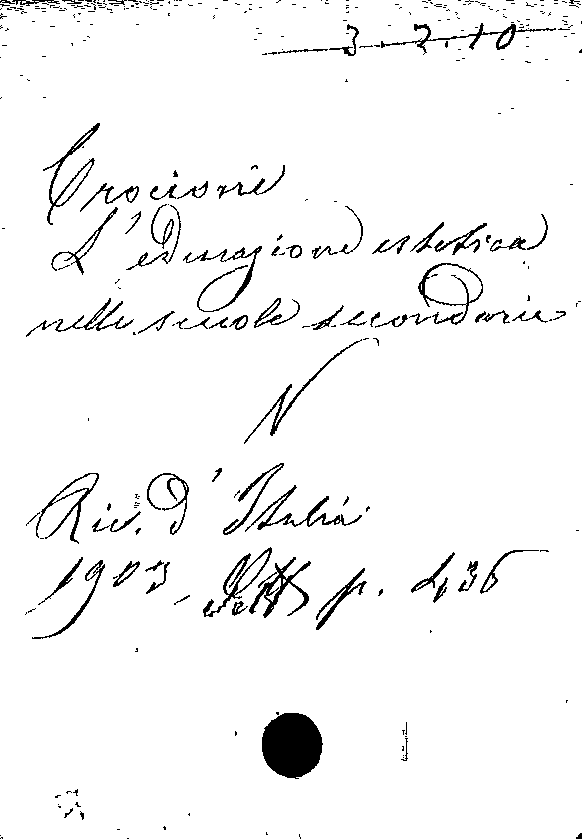 3.2.10
Crocioni
L'educazione estetica
nelle scuole secondarie
N
Riv. d'Italia
1903, Sett p. 436